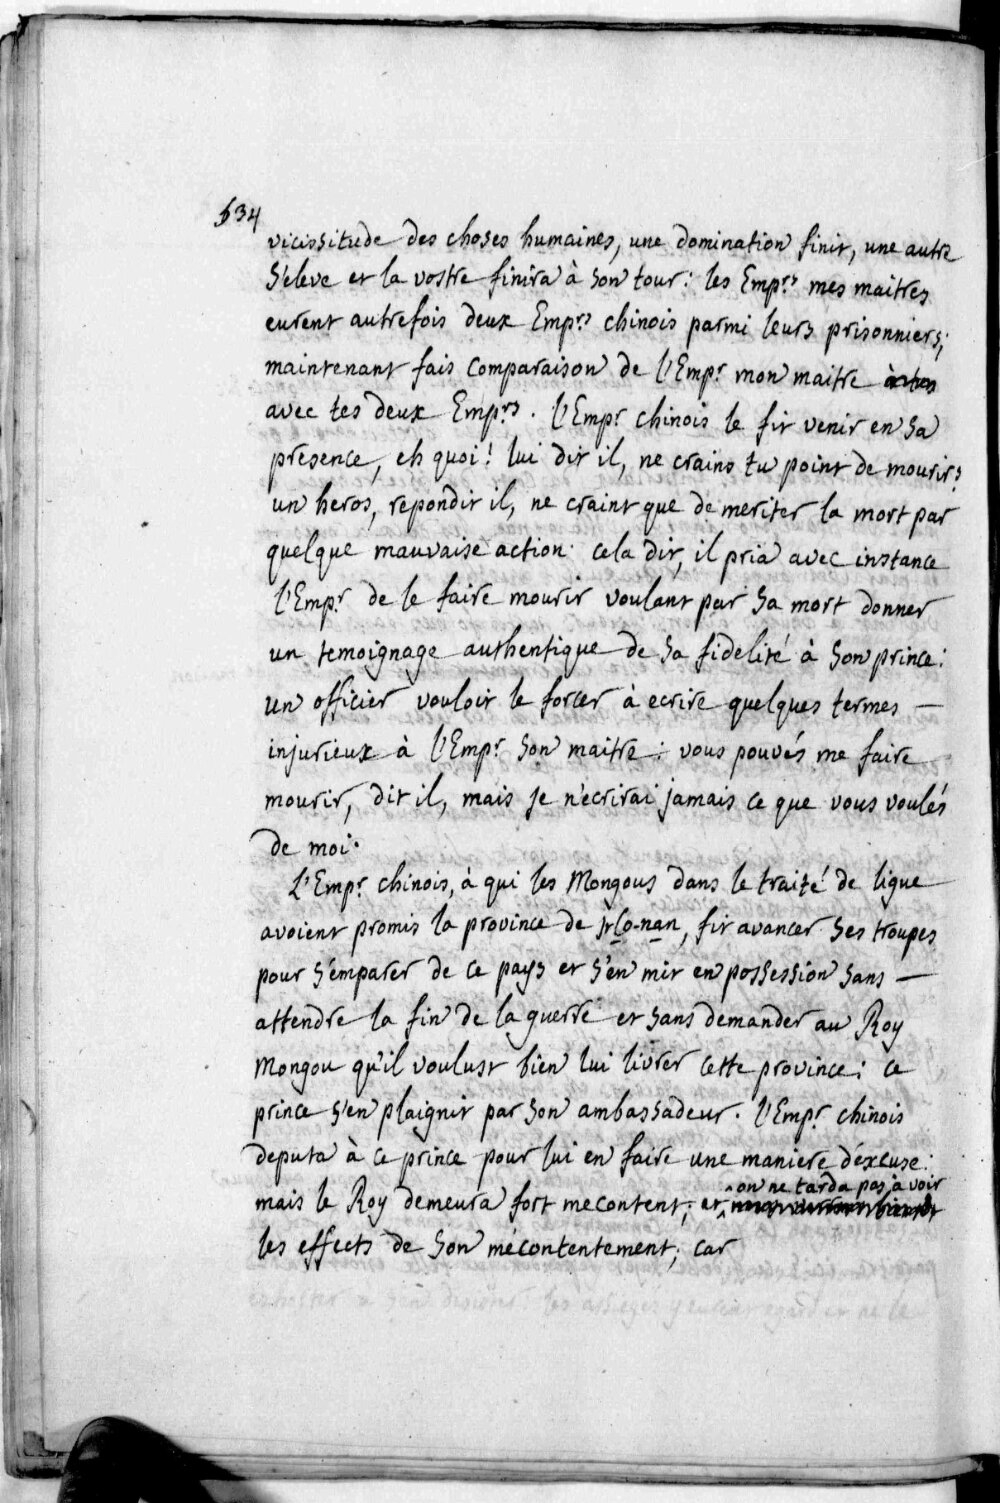 634
vicissitude des choses humaines, une domination finit, une autre
s'eleve et la vostre finira à son tour: les Emp.rs mes maitres
eurent autrefois deux Emp.rs chinois parmi leurs prisonniers;
maintenant fais comparaison de l'Emp.r mon maitre
avec tes deux Emp.rs. l'Emp.r chinois le fit venir en sa
presence, eh quoi! lui dit il, ne crains tu point de mourir?
un heros, repondit il, ne craint que de meriter la mort par
quelque mauvaise action. cela dit, il pria avec instance
l'Emp.r de le faire mourir voulant par sa mort donner
un temoignage authentique de sa fidelité à son prince:
un officier vouloit le forcer à ecrire quelques termes —
injurieux à l'Emp.r son maitre: vous pouvés me faire
mourir, dit il, mais je n'ecrirai jamais ce que vous voulés
de moi.
L'Emp.r chinois, à qui les Mongous dans le traité de ligue
avoient promis la province de , fit avancer ses troupes
pour s'emparer de ce pays et s'en mit en possession sans —
attendre la fin de la guerre et sans demander au Roy
Mongou qu'il voulust bien lui livrer cette province: ce
prince s'en plaignit par son ambassadeur. l'Emp.r chinois
deputa à ce prince pour lui en faire une maniere d'excuse:
mais le Roy demeura fort mecontent; et on ne tarda pas à voir
les effects de son mécontentement; car